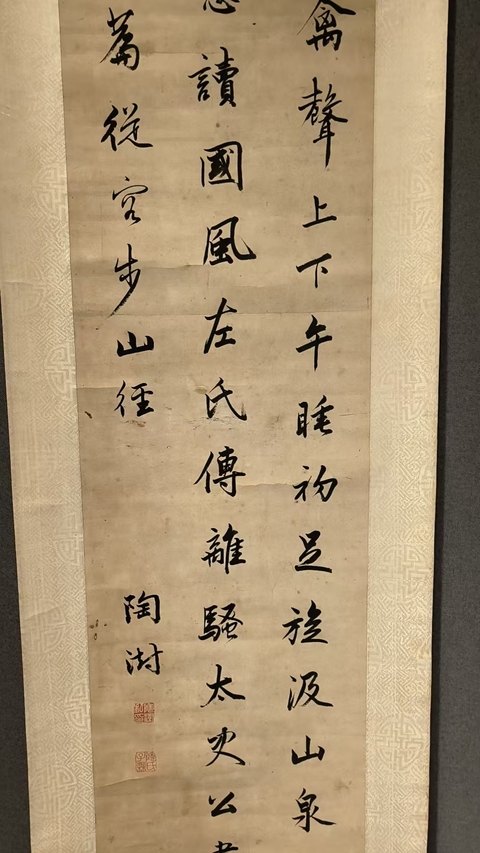 禽聲上下午睡初足旋汲山泉
讀國風左氏傳離騷太史公
篇從容步山徑
陶澍